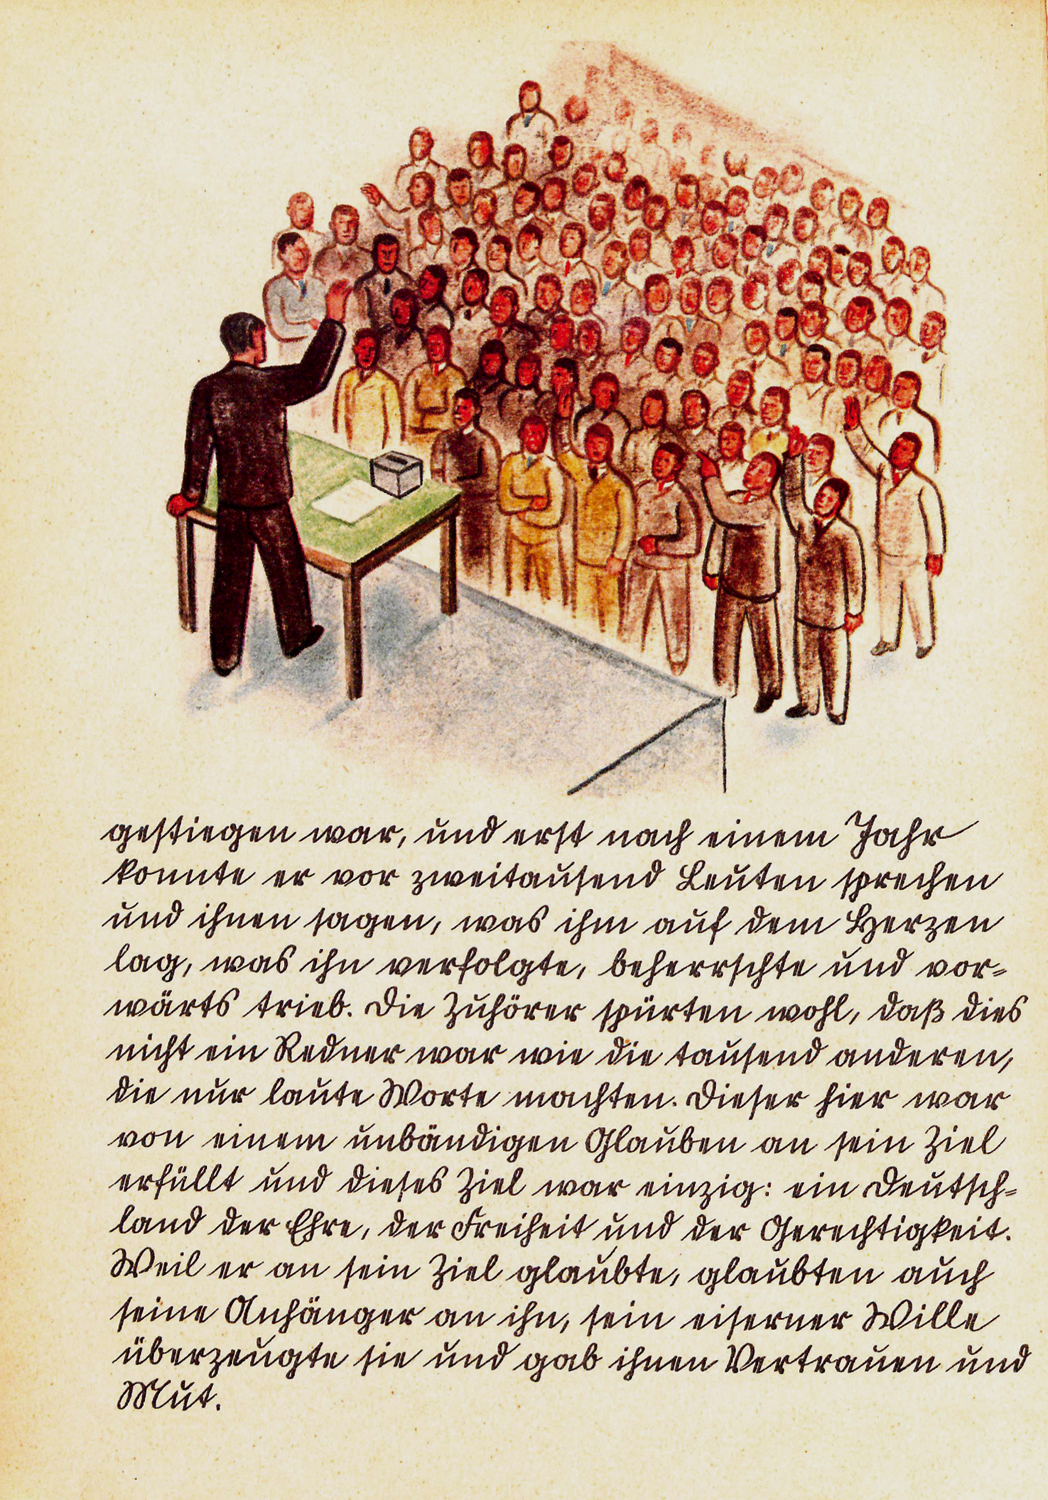 gestiegen war, und erst nach einem Jahr
konnte er vor zweitausend Leuten sprechen
und ihnen sagen, was ihm auf dem Herzen
lag, was ihn verfolgte, beherrschte und vor=
wärts trieb. Die Zuhörer spürten wohl, daß dies
nicht ein Redner war wie die tausend anderen,
die nur laute Worte machten. Dieser hier war
von einem unbändigen Glauben an sein Ziel
erfüllt und dieses Ziel war einzig: ein Deutsch=
land der Ehre, der Freiheit und der Gerechtigkeit.
Weil er an sein Ziel glaubte, glaubten auch
seine Anhänger an ihn, sein eiserner Wille
überzeugte sie und gab ihnen Vertrauen und
Mut.